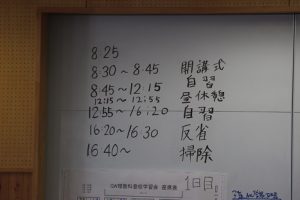 8.25
8.30～8.45 開講式
8.45～12.15 自習
12:15～12:55 昼休憩
12:55～16:20 自習
16.20～16.30 反省
16.40～ 掃除
1日目
座席表